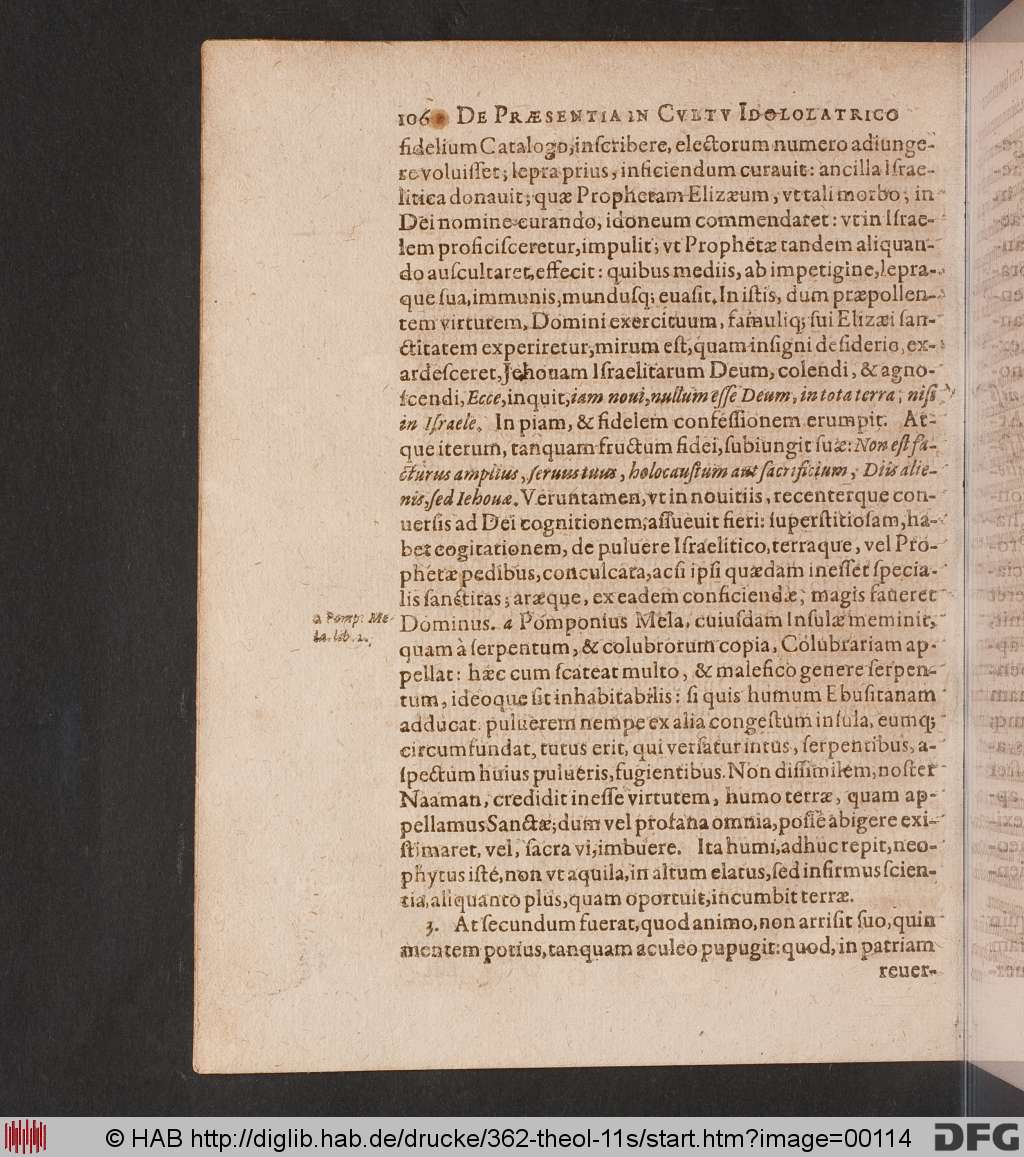 106 DE PRÆSENTIA IN CVLTV IDOLOLATRICO
fidelium Catalogo, inſcribere, electorum numero adiunge-
re voluiſſet; lepra prius, inficiendum curauit: ancilla Iſrae-
litica donauit; quæ Prophetam Elizæum, vt tali morbo, in
Dei nomine curando, idoneum commendaret: vt in Iſrae-
lem proficiſceretur, impulit; vt Prophetæ tandem aliquan-
do auſcultaret, effecit: quibus mediis, ab impetigine, lepra-
que ſua, immunis, munduſq; euaſit. In iſtis, dum præpollen-
tem virtutem, Domini exercituum, famuliq; ſui Elizæi ſan-
ctitatem experiretur, mirum eſt, quam inſigni deſiderio, ex-
ardeſceret, Jehouam Iſraelitarum Deum, colendi, & agno-
ſcendi, Ecce, inquit, iam noui, nullum eſſe Deum, in tota terra, niſi
in Iſraele. In piam, & fidelem confeſſionem erumpit. At-
que iterum, tanquam fructum fidei, ſubiungit ſuæ: Non eſt fa-
cturus amplius, ſeruus tuus, holocauſtum aut ſacrificium, Diis alie-
nis, ſed Iehouæ. Veruntamen, vt in nouitiis, recenterque con-
uerſis ad Dei cognitionem, aſſueuit fieri: ſuperſtitioſam, ha-
bet cogitationem, de puluere Iſraelitico, terraque, vel Pro-
phetæ pedibus, conculcata, acſi ipſi quædam ineſſet ſpecia-
lis ſanctitas; aræque, ex eadem conficiendæ, magis faueret
Dominus. a Pomponius Mela, cuiuſdam Inſulæ meminit,
a Pomp: Me-
la. lib. 2.
quam à ſerpentum, & colubrorum copia, Colubrariam ap-
pellat: hæc cum ſcateat multo, & malefico genere ſerpen-
tum, ideoque ſit inhabitabilis: ſi quis humum Ebuſitanam
adducat. puluerem nempe ex alia congeſtum inſula, eumq;
circumfundat, tutus erit, qui verſatur intus, ſerpentibus, a-
ſpectum huius pulueris, fugientibus. Non diſſimilem, noſter
Naaman, credidit ineſſe virtutem, humo terræ, quam ap-
pellamus Sanctæ; dum vel profana omnia, poſſe abigere exi-
ſtimaret, vel, ſacra vi, imbuere. Ita humi, adhuc repit, neo-
phytus iſte, non vt aquila, in altum elatus, ſed infirmus ſcien-
tia, aliquanto plus, quam oportuit, incumbit terræ.
3. At ſecundum fuerat, quod animo, non arriſit ſuo, quin
mentem potius, tanquam aculeo pupugit: quod, in patriam
reuer-
© HAB http://diglib.hab.de/drucke/362-theol-11s/start.htm?image=00114
DFG